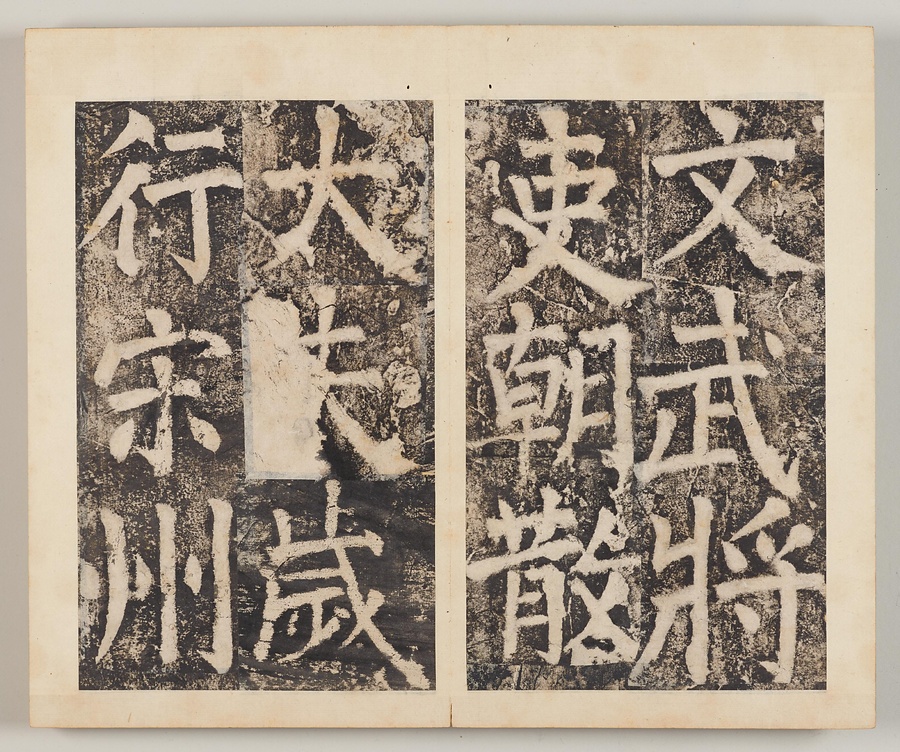 文武將
吏朝散
大夫歲
行宋州